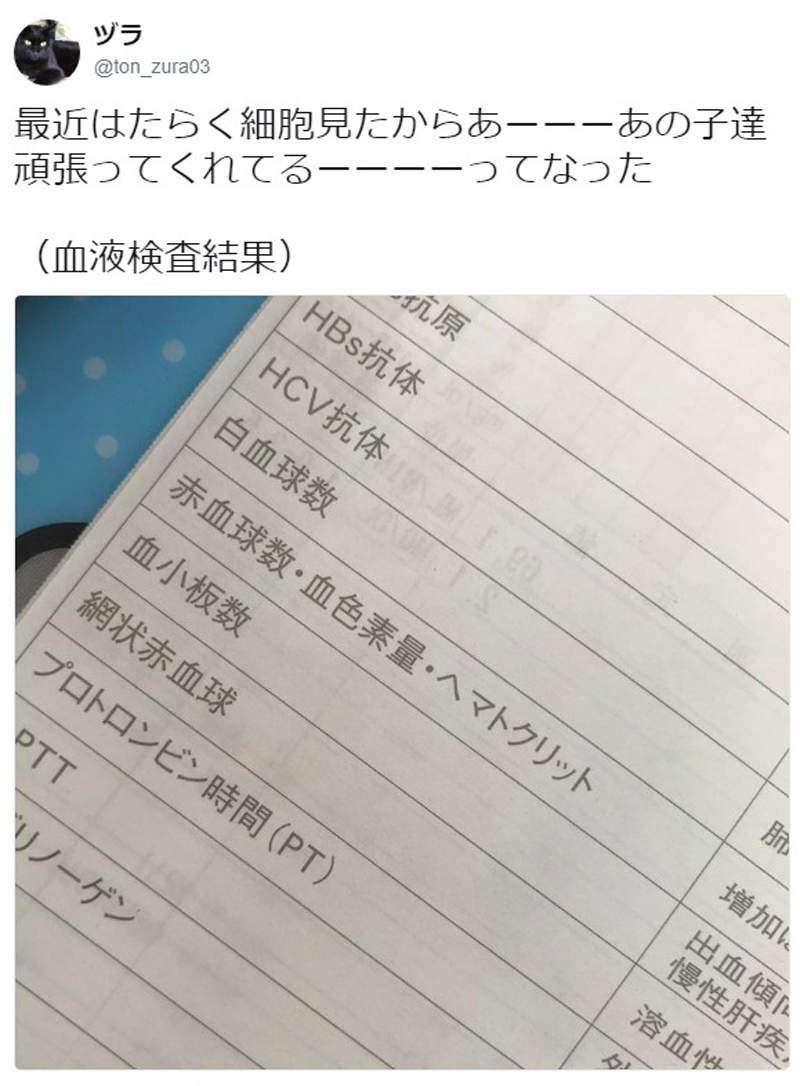 ヅラ
@ton_zura03
最近はたらく細胞見たからあーーーあの子達
頑張ってくれてるーーーーってなった
（血液検査結果）
抗原
HBs抗体
HCV抗体
白血球数
赤血球数・血色素量・ヘマトクリット
血小板数
網状赤血球
プロトロンビン時間(PT)
PTT
リノーゲン
肺
増加
出血傾向
慢性肝疾
溶血性